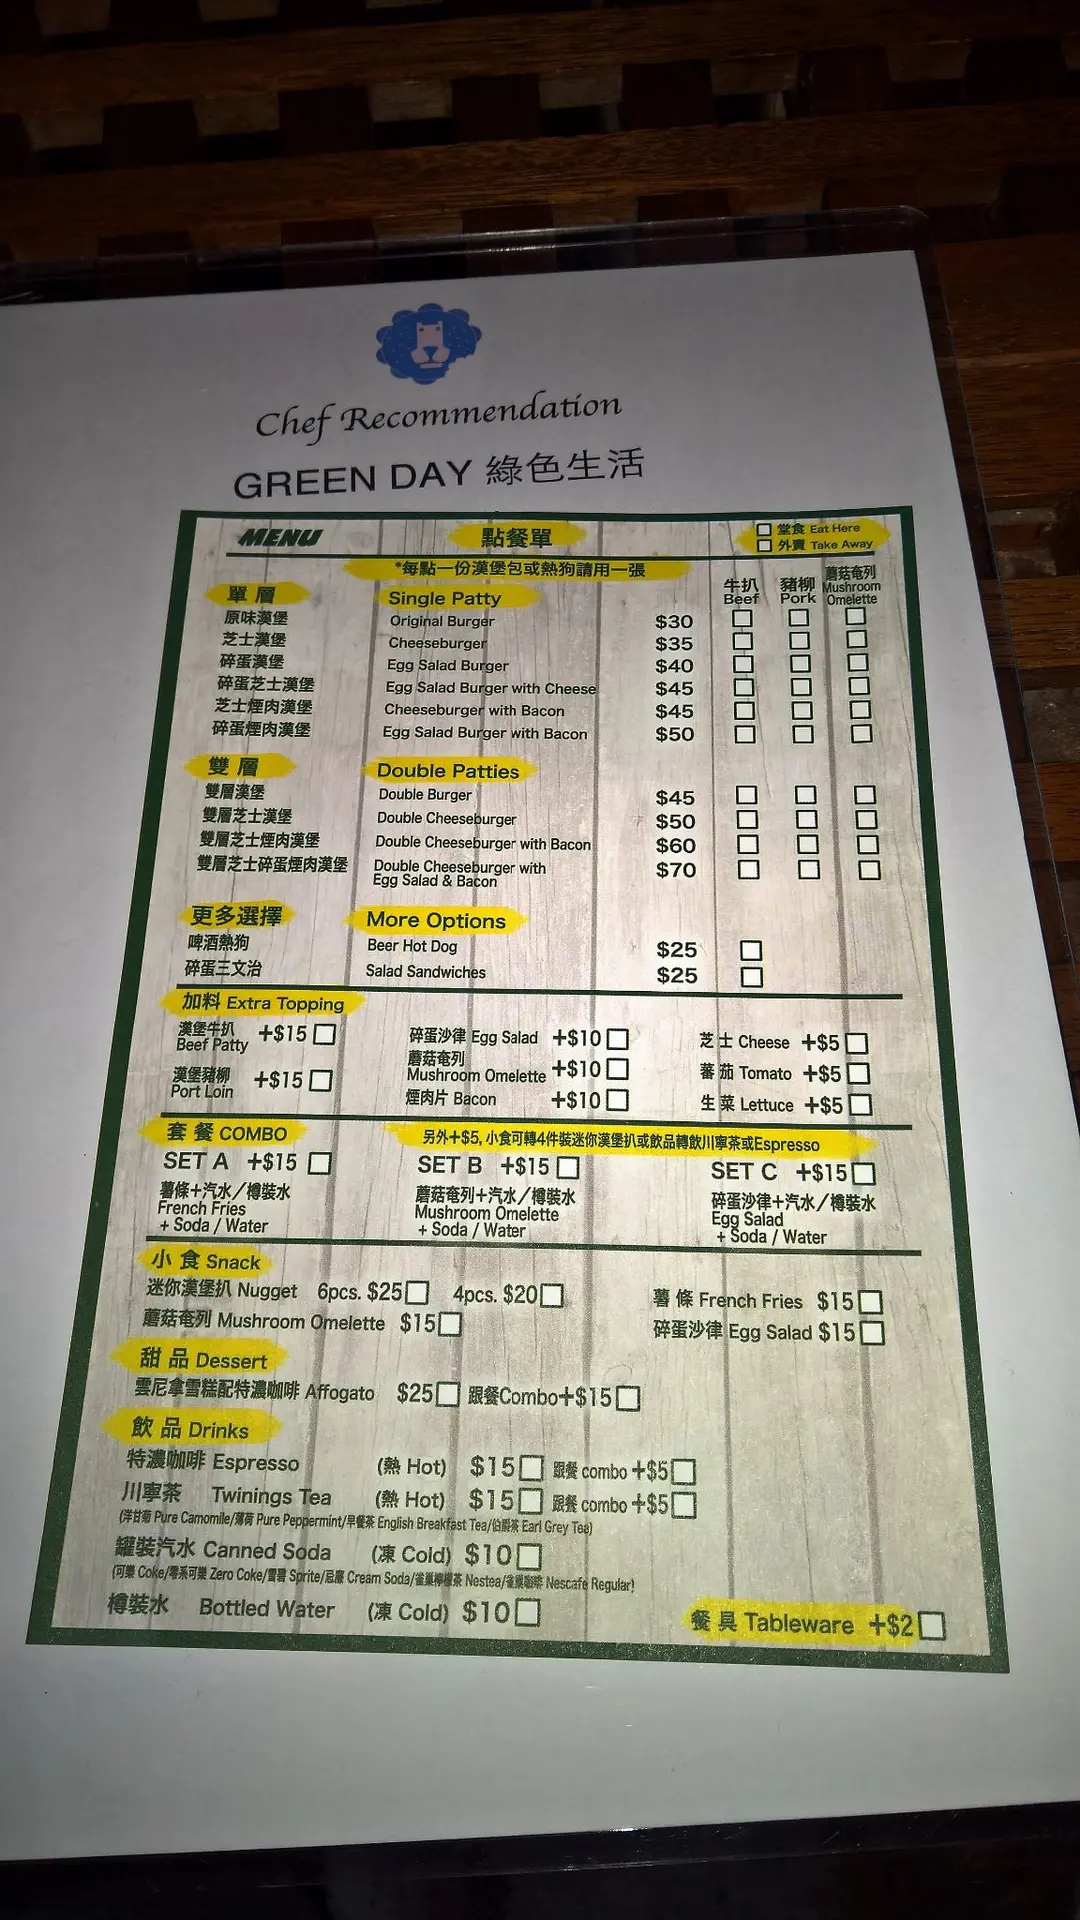 Chef Recommendation
GREEN DAY 綠色生活
MENU 點餐單 堂食 Eat Here
外賣 Take Away
*每點一份漢堡包或熱狗請用一張
單層 Single Patty 牛扒 Beef 豬柳 Pork 蘑菇奄列 Mushroom Omelette
原味漢堡 Original Burger $30
芝士漢堡 Cheeseburger $35
碎蛋漢堡 Egg Salad Burger $40
碎蛋芝士漢堡 Egg Salad Burger with Cheese $45
芝士煙肉漢堡 Cheeseburger with Bacon $45
碎蛋煙肉漢堡 Egg Salad Burger with Bacon $50
雙層 Double Patties
雙層漢堡 Double Burger $45
雙層芝士漢堡 Double Cheeseburger $50
雙層芝士煙肉漢堡 Double Cheeseburger with Bacon $60
雙層芝士碎蛋煙肉漢堡 Double Cheeseburger with $70
Egg Salad & Bacon
更多選擇 More Options
啤酒熱狗 Beer Hot Dog $25
碎蛋三文治 Salad Sandwiches $25
加料 Extra Topping
漢堡牛扒 Beef Patty +$15 碎蛋沙律 Egg Salad +$10 芝士 Cheese +$5
蘑菇奄列 Mushroom Omelette +$10 蕃茄 Tomato +$5
漢堡豬柳 Port Loin +$15 煙肉片 Bacon +$10 生菜 Lettuce +$5
套餐 COMBO 另外+$5, 小食可轉4件裝迷你漢堡扒或飲品轉飲川寧茶或Espresso
SET A +$15 SET B +$15 SET C +$15
薯條+汽水/樽裝水 蘑菇奄列+汽水/樽裝水 碎蛋沙律+汽水/樽裝水
French Fries Mushroom Omelette Egg Salad
+ Soda / Water + Soda / Water + Soda / Water
小食 Snack
迷你漢堡扒 Nugget 6pcs. $25 4pcs. $20 薯條 French Fries $15
蘑菇奄列 Mushroom Omelette $15 碎蛋沙律 Egg Salad $15
甜品 Dessert
雲尼拿雪糕配特濃咖啡 Affogato $25 跟餐Combo+$15
飲品 Drinks
特濃咖啡 Espresso (熱 Hot) $15 跟餐 combo +$5
川寧茶 Twinings Tea (熱 Hot) $15 跟餐 combo +$5
(洋甘菊 Pure Camomile/薄荷 Pure Peppermint/早餐茶 English Breakfast Tea/伯爵茶 Earl Grey Tea)
罐裝汽水 Canned Soda (凍 Cold) $10
(可樂 Coke/零系可樂 Zero Coke/雪碧 Sprite/忌廉 Cream Soda/雀巢檸檬茶 Nestea/雀巢咖啡 Nescafe Regular)
樽裝水 Bottled Water (凍 Cold) $10
餐具 Tableware +$2